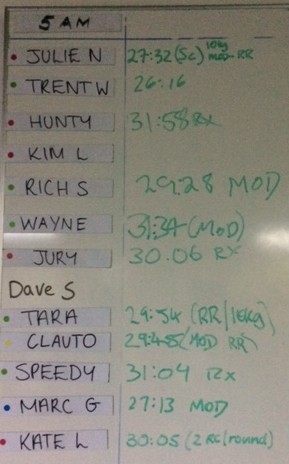 5 AM
JULIE N 27:32 (Sc) 10kg MOD RR
TRENT W 26:16
HUNTY 31:58 RX
KIM L
RICH S 29.28 MOD
WAYNE 31:34 (MOD)
JURY 30.06 RX
Dave S
TARA 29:54 (RR/16kg)
CLAUTO 29:45 (MOD RR)
SPEEDY 31:04 Rx
MARC G 27:13 MOD
KATE L 30:05 (2 RC/round)